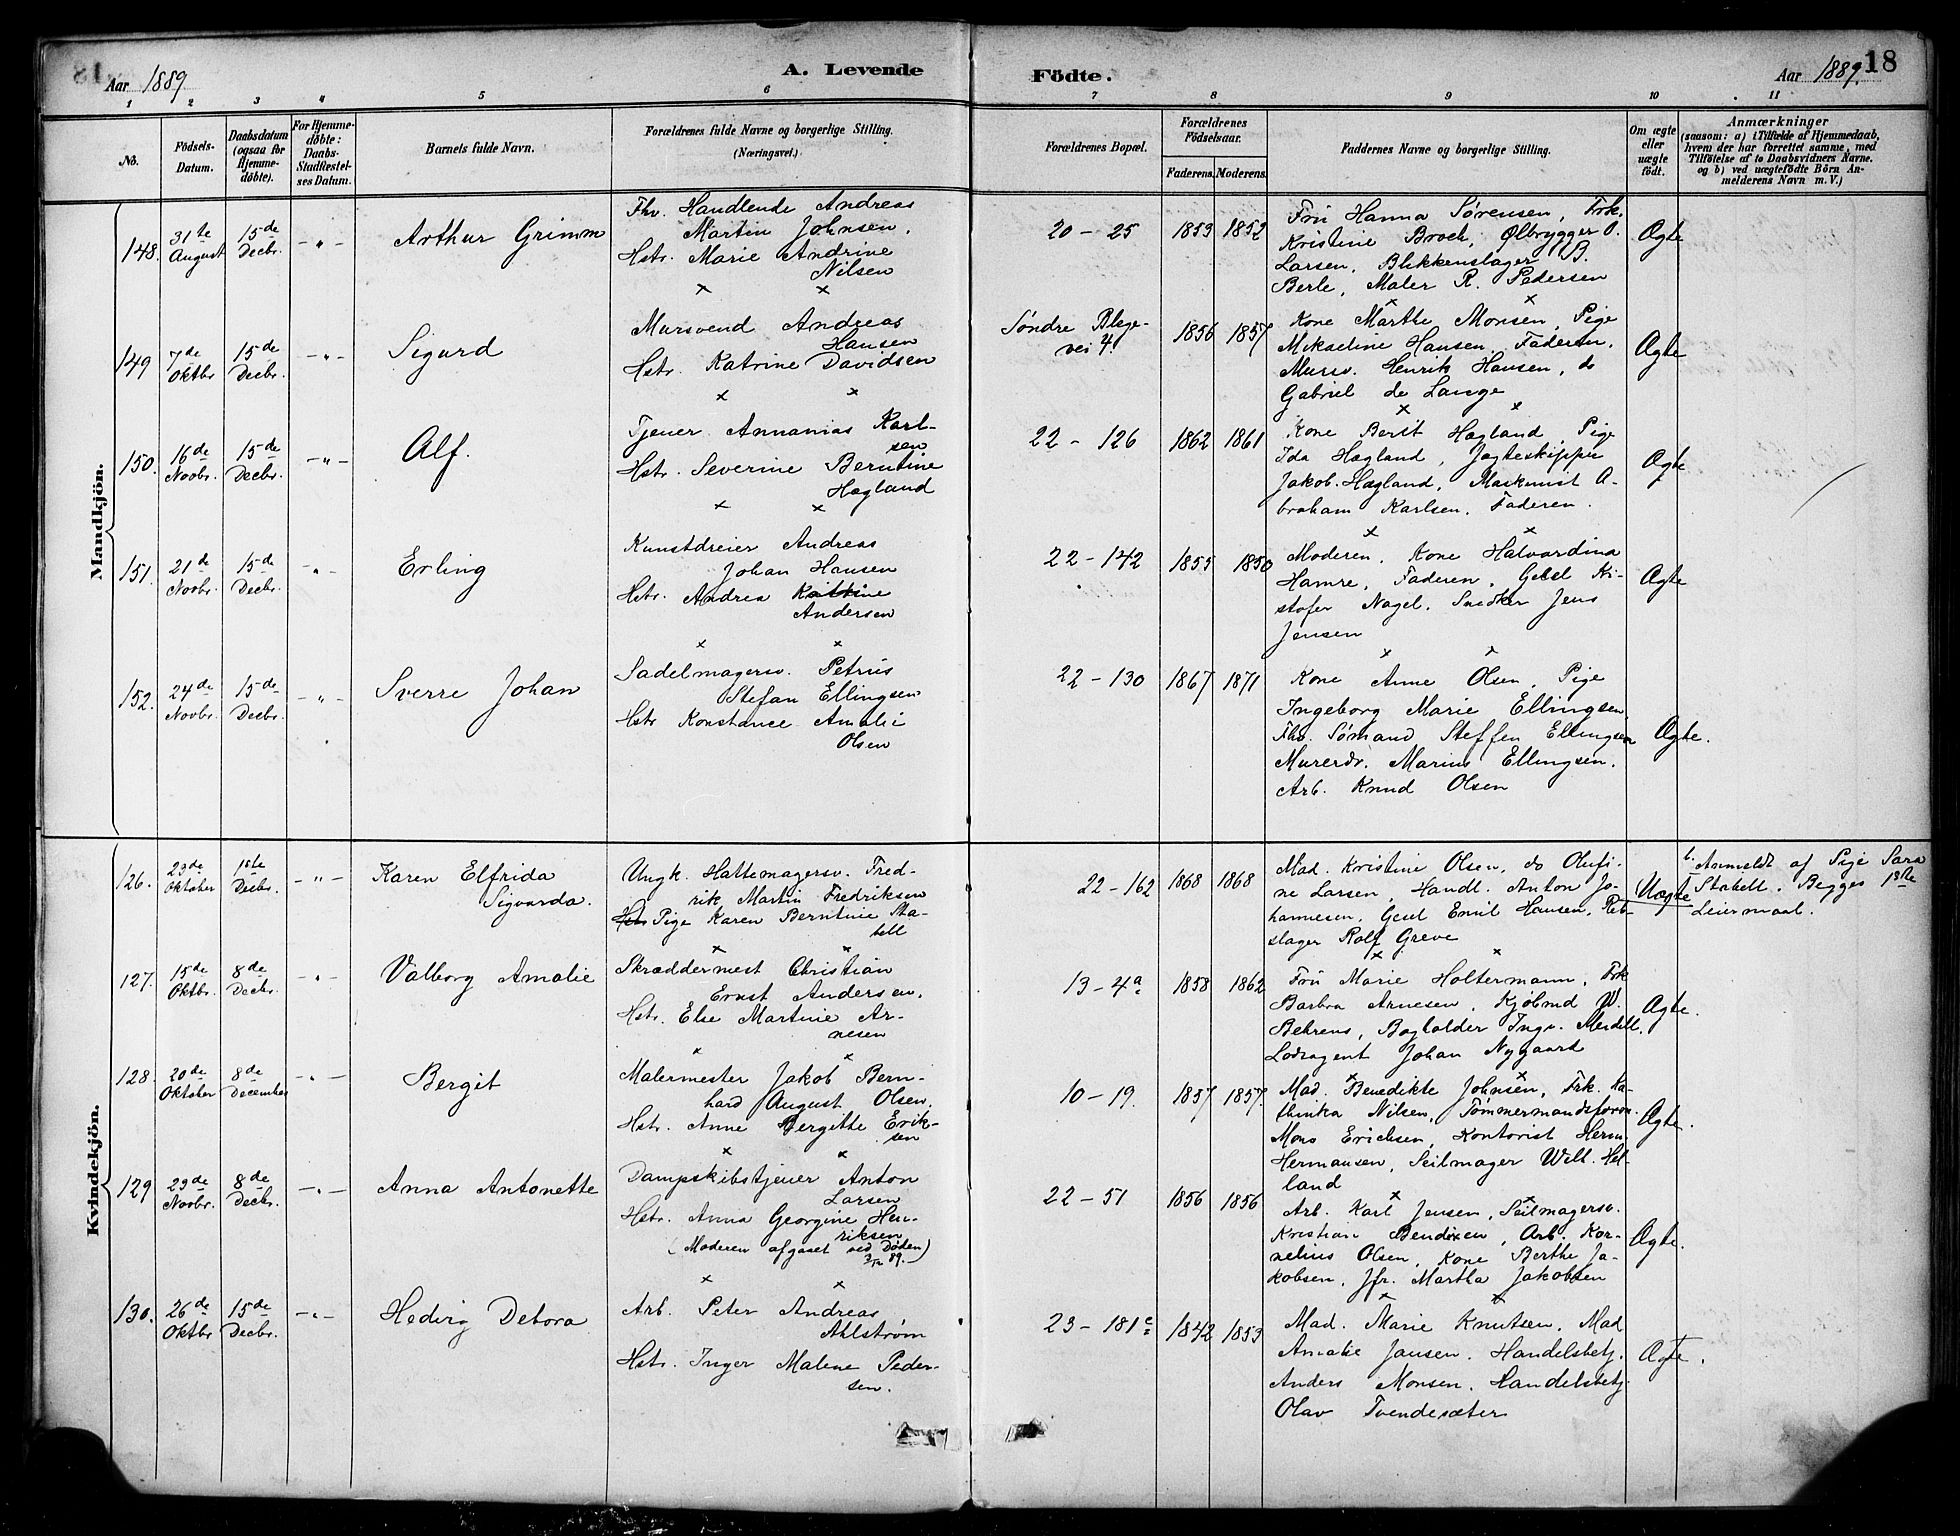 Aar 1889 A. Levende Födte. Aar 1889. 18
1 2 3 4 5 6 7 8 9 10 11
No. Födsels-Datum. Daabsdatum (ogsaa for Hjemme-döbte). For Hjemme-döbte: Daabs-Stadfæstel-ses Datum. Barnets fulde Navn. Forældrenes fulde Navne og borgerlige Stilling. (Næringsvei.) Forældrenes Bopæl. Forældrenes Födselsaar. Faderens. Moderens. Faddernes Navne og borgerlige Stilling. Om ægte eller uægte födt. Anmærkninger
(saasom: a) i Tilfælde af Hjemmedaab,
hvem der har forrettet samme, med
Tilföielse af to Daabsvidners Navne.
og b) ved uægtefödte Börn An-
melderens Navn m. V.)
Mandkjön.
148. 31te August 15de Decbr. -"- Arthur Grimm
Fhv. Handlende Andreas
Martin Johnsen.
Hstr. Marie Andrine
Nilsen
20 - 25 1859 1852
Fru Hanna Sørensen, Frk.
Kristine Broch, Ølbrygger O.
Larsen, Blikkenslager B.
Berle, Maler R. Pedersen
Ægte
149 7de Oktbr 15de Decbr. -"- Sigurd
Mursvend Andreas
Hansen
Hstr. Katrine Davidsen
Søndre Blege-
vei 4. 1856 1857
Kone Marthe Monsen, Pige
Mikaeline Hansen, Faderen,
Mursv. Henrik Hansen, do
Gabriel de Lange
Ægte
150. 16de Novbr. 15de Decbr. -"- Alf.
Tjener Annanias Karl-
sen
Hstr. Severine Berntine
Hægland
22 - 126 1862 1861
Kone Berit Hægland Pige
Ida Hægland, Jagteskipper
Jakob Hægland, Maskinist A-
braham Karlsen, Faderen.
Ægte
151. 21de Novbr. 15de Decbr. -"- Erling
Kunstdreier Andreas
Johan Hansen
Hstr. Andrea
Andersen
22 - 142 1855 1850
Moderen, Kone Halvardina
Hamre, Faderen, Gesel Kri-
stofer Nagel, Snedker Jens
Jensen
Ægte
152. 24de Novbr. 15de Decbr. -"- Sverre Johan
Sadelmagersv. Petrus
Stefan Ellingsen
Hstr Konstance Amalie
Olsen
22 - 130 1867 1871
Kone Anne Olsen, Pige
Ingeborg Marie Ellingsen,
Fhv. Sømand Steffen Ellingsen
Marius Ellingsen.
Arb. Knud Olsen
Ægte.
Kvindekjön.
126. 23de Oktober 1ste Decbr. -"- Karen Elfrida
Sigvarda.
Ungk. Hattemagersv. Fred-
rik Martin Fredriksen
Hstr Pige Karen Berntine Sta-
bell
22 - 162 1868 1868
Mad. Kristine Olsen, do Olufi-
ne Larsen, Handl. Anton Jo-
hannesen, Gesel Emil Hansen, Reb-
slager Rolf Greve
Uægte
b. Anmeldt af Pige Sara
Stabell. Begges 1ste
Leiermaal.
127. 15de Oktbr. 8de Decbr. -"- Valborg Amalie
Skræddermest Christian
Ernst Andersen,
Hstr. Else Martine Ar-
nesen
13 - 4a 1858 1862
Fru Marie Holtermann, Frk
Barbra Arnesen, Kjøbmd W.
Behrens, Bogholder Ingv. Mendell,
Lodsagent Johan Nygaard
Ægte.
128. 20de Oktober 8de December -"- Bergit
Malermester Jakob Bern-
hard August Olsen,
Hstr. Anne Bergitte Erik-
sen
10 - 19. 1857 1857
Mad. Benedikte Johnsen, Frk. Ka-
thinka Nilsen, Tømmermandsform.
Mons Erichsen, Kontorist Herm.
Hermansen, Seilmager Will. Hel-
land
Ægte.
129 29de Novbr. 8de Decbr. -"- Anna Antonette
Dampskibstjener Anton
Larsen
Hstr. Anna Georgine Hen-
riksen
(Moderen afgaaet ved Døden
89.)
22 - 51 1856 1856
Arb. Karl Jensen, Seilmagersv.
Kristian Bendixen, Arb. Kor-
nelius Olsen, Kone Berthe Ja-
kobsen, Jfr. Martha Jakobsen
Ægte.
130. 26de Oktbr 15de Decbr. -"- Hedvig Debora
Arb. Peter Andreas
Ahlstrøm
Hstr. Inger Malene Peder-
sen.
23 - 181c 1842 1853
Mad. Marie Knutsen, Mad
Amalie Jansen, Handelsbetj.
Anders Monsen, Handelsbetj.
Olav Tvendesæter
Ægte.